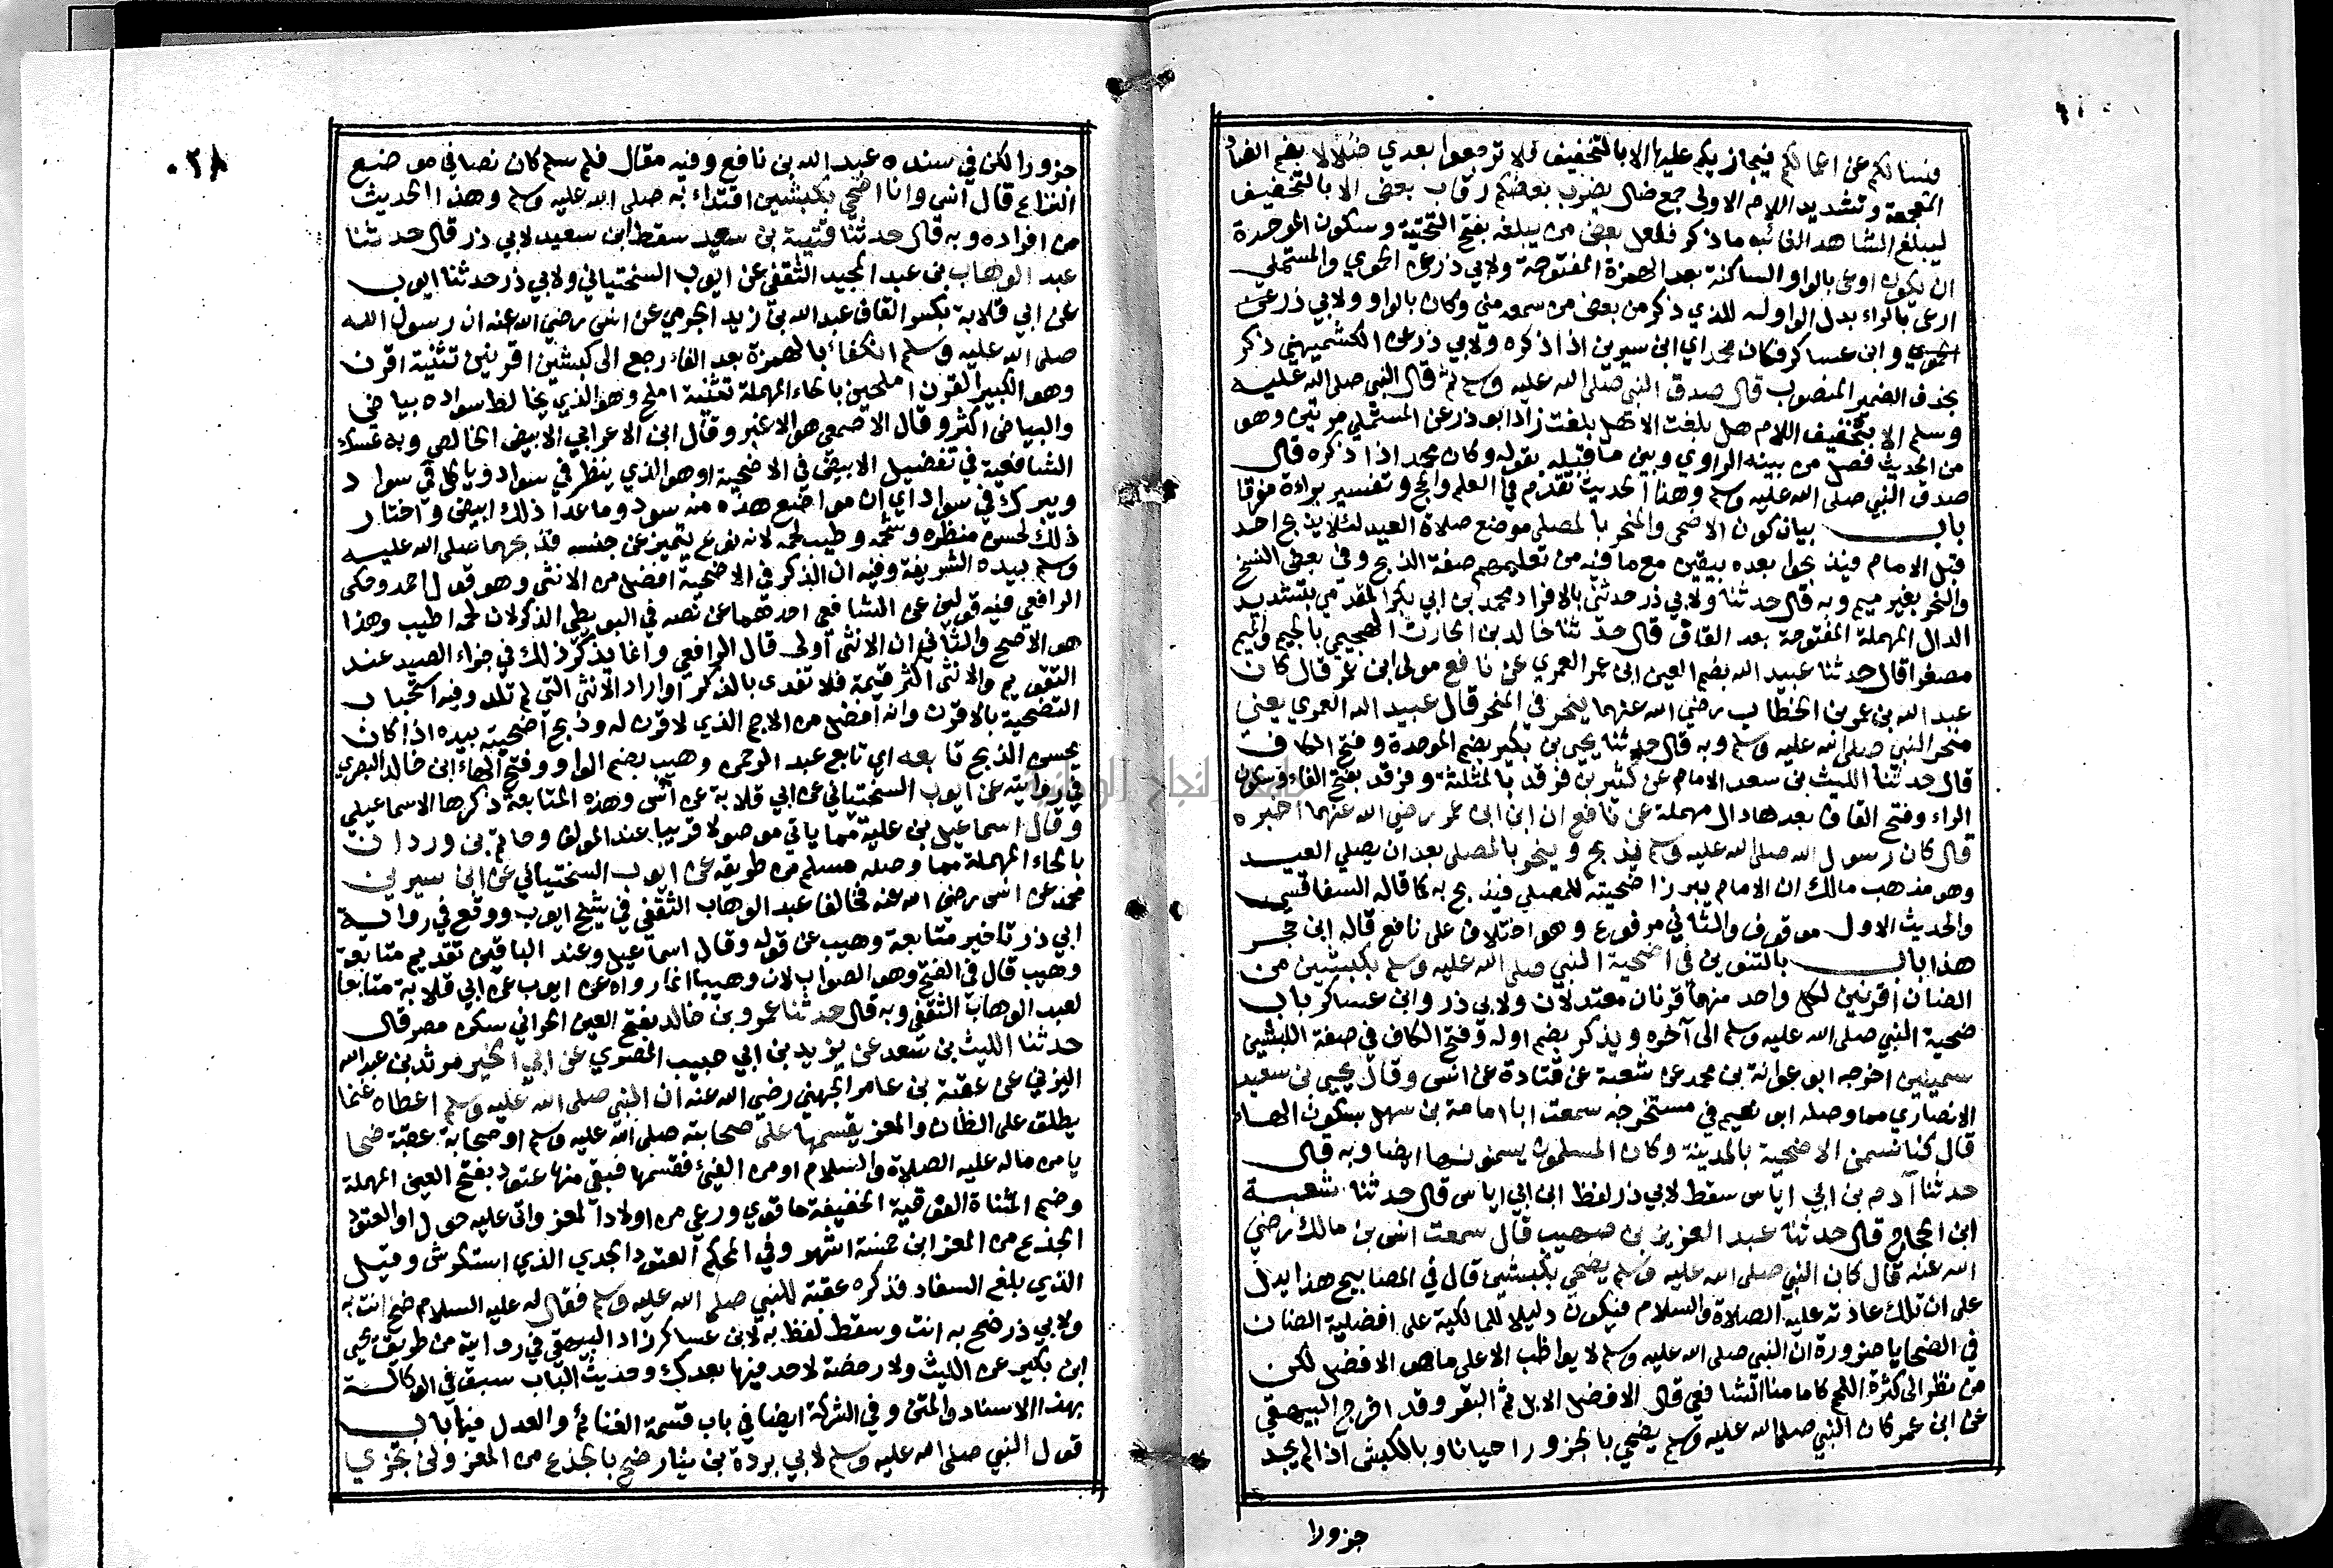 فنسالكم عن اعمالكم فيجازيكم عليها الا بالتخفيف فلا ترجعوا بعدي ضلالا بضم الضاد
المعجمة وتشديد اللام الاولى جمع ضال يضرب بعضكم رقاب بعض الا بالتخفيف
ليبلغ الشاهد الغائب ما ذكر فلعل بعض من يبلغه بفتح التحتية وسكون الموحدة
ان يكون اوعى بالواو الساكنة بعد الهمزة المفتوحة ولابي ذر عن الحموي والمستملي
ارعى بالراء بدل الواو له للذي ذكر من بعض من سمعه مني وكان بالواو ولابي ذر عن
الحموي وابن عساكر فكان محمد اي ابن سيرين اذا ذكره ولابي ذر عن الكشميهني ذكر
بحذف الضمير المنصوب قال صدق النبي صلى الله عليه وسلم ثم قال النبي صلى الله عليه
وسلم الا بتخفيف اللام هل بلغت الا هل بلغت زاد ابو ذر عن المستملي مرتين وهو
من الحديث فصل من بينه الراوي وبين ما قبله بقوله وكان محمد اذا ذكره قال
صدق النبي صلى الله عليه وسلم وهذا الحديث تقدم في العلم والحج وتفسير براءة مفرقا
باب بيان كون الاضحى والمنحر بالمصلى موضع صلاة العيد لئلا يذبح احد
قبل الامام فيذبحوا بعده بيقين مع ما فيه من تعليمهم صفة الذبح وفي بعض النسخ
والنحر بغير ميم وبه قال حدثنا ولابي ذر حدثني بالافراد محمد بن ابي بكر المقدمي بتشديد
الدال المهملة المفتوحة بعد القاف قال حدثنا خالد بن الحارث الهجيمي بالجيم والميم
مصغرا قال حدثنا عبيد الله بضم العين ابن عمر العمري عن نافع مولى ابن عمر قال كان
عبد الله بن عمر بن الخطاب رضي الله عنهما ينحر في المنحر قال عبيد الله العمري يعني
منحر النبي صلى الله عليه وسلم وبه قال حدثنا يحيى بن بكير بضم الموحدة وفتح الكاف
قال حدثنا الليث بن سعد الامام عن كثير بن فرقد بالمثلثة وفرقد بفتح الفاء وسكون
الراء وفتح القاف بعدها دال مهملة عن نافع ان ابن عمر رضي الله عنهما اخبره
قال كان رسول الله صلى الله عليه وسلم يذبح وينحر بالمصلى بعد ان يصلي العيد
وهو مذهب مالك ان الامام يبرز اضحيته للمصلى فيذبح به كما قاله السفاقسي
والحديث الاول موقوف والثاني مرفوع وهو اختلاف على نافع قاله ابن حجر
هذا باب بالتنوين في اضحية النبي صلى الله عليه وسلم بكبشين من
الضان اقرنين لكل واحد منهما قرنان معتدلان ولابي ذر وابن عساكر باب
ضحية النبي صلى الله عليه وسلم الى آخره ويذكر بضم اوله وفتح الكاف في صفة الكبشين
سمينين اخرجه ابو عوانة بن محمد عن شعبة عن قتادة عن انس وقال يحيى بن سعيد
الانصاري مما وصله ابو نعيم في مستخرجه سمعت ابا امامة بن سهل بسكون الهاء
قال كنا نسمن الاضحية بالمدينة وكان المسلمون يسمنونها ايضا وبه قال
حدثنا آدم بن ابي اياس سقط لابي ذر لفظ ابن ابي اياس قال حدثنا شعبة
ابن الحجاج قال حدثنا عبد العزيز بن صهيب قال سمعت انس بن مالك رضي
الله عنه قال كان النبي صلى الله عليه وسلم يضحي بكبشين قال في المصابيح هذا يدل
على ان تلك عادته عليه الصلاة والسلام فيكون دليلا للمالكية على افضلية الضان
في الضحايا ضرورة ان النبي صلى الله عليه وسلم لا يواظب الا على ما هو الافضل لكن
من نظر الى كثرة اللحم كامامنا الشافعي قال الافضل الابل ثم البقر وقد اخرج البيهقي
عن ابن عمر كان النبي صلى الله عليه وسلم يضحي بالجزور احيانا وبالكبش اذا لم يجد
جزورا
٠٣٨
جزورا لكن في سنده عبد الله بن نافع وفيه مقال فلم سلم كان نصا في موضع
النزاع قال انس وانا اضحي بكبشين اقتداء به صلى الله عليه وسلم وهذا الحديث
من افراده وبه قال حدثنا قتيبة بن سعيد سقط ابن سعيد لابي ذر قال حدثنا
عبد الوهاب بن عبد المجيد الثقفي عن ايوب السختياني ولابي ذر حدثنا ايوب
عن ابي قلابة بكسر القاف عبد الله بن زيد الجرمي عن انس رضي الله عنه ان رسول الله
صلى الله عليه وسلم انكفأ بالهمزة بعد الفاء رجع الى كبشين اقرنين تثنية اقرن
وهو الكبير القرن املحين بالحاء المهملة تثنية املح وهو الذي يخالط سواده بياض
والبياض اكثر وقال الاصمعي هو الاغبر وقال ابن الاعرابي الابيض الخالص وبه تمسك
الشافعية في تفضيل الابيض في الاضحية او هو الذي ينظر في سواد وياكل في سواد
ويبرك في سواد اي ان مواضع هذه منه سود وما عدا ذلك ابيض واختار
ذلك لحسن منظره وشحمه وطيب لحمه لانه نوع يتميز عن جنسه فذبحهما صلى الله عليه
وسلم بيده الشريفة وفيه ان الذكر في الاضحية افضل من الانثى وهو قول احمد وحكى
الرافعي فيه قولين عن الشافعي احدهما عن نصه في البويطي الذكر لان لحمه اطيب وهذا
هو الاصح والثاني ان الانثى اولى قال الرافعي وانما يذكر ذلك في جزاء الصيد عند
التقويم والانثى اكثر قيمة فلا تفدى بالذكر او اراد الانثى التي لم تلد وفيه استحباب
التضحية بالاقرن وانه افضل من الاجم الذي لا قرن له وذبح اضحيته بيده اذا كان
يحسن الذبح تابعه اي تابع عبد الرحمن وهيب بضم الواو وفتح الهاء ابن خالد البصري
في روايته عن ايوب السختياني عن ابي قلابة عن انس وهذه المتابعة ذكرها الاسماعيلي
وقال اسماعيل بن علية مما ياتي موصولا قريبا عند المولف وحاتم بن وردان
بالحاء المهملة مما وصله مسلم من طريقه عن ايوب السختياني عن ابن سيرين
محمد عن انس رضي الله عنه فخالفا عبد الوهاب الثقفي في شيخ ايوب ووقع في رواية
ابي ذر تاخير متابعة وهيب عن قوله وقال اسماعيل وعند الباقين تقديم متابعة
وهيب قال في الفتح وهو الصواب لان وهيبا انما رواه عن ايوب عن ابي قلابة متابعا
لعبد الوهاب الثقفي وبه قال حدثنا عمرو بن خالد بفتح العين الحراني سكن مصر قال
حدثنا الليث بن سعد عن يزيد بن ابي حبيب المصري عن ابي الخير مرثد بن عبد الله
اليزني عن عقبة بن عامر الجهني رضي الله عنه ان النبي صلى الله عليه وسلم اعطاه غنما
يطلق على الضان والمعز يقسمها على صحابته صلى الله عليه وسلم او صحابة عقبة ضحا
يا من ماله عليه الصلاة والسلام او من الفيئ فقسمها فبقي منها عتود بفتح العين المهملة
وضم المثناة الفوقية الخفيفة ما قوي ورعي من اولاد المعز واتى عليه حول او العتود
الجذع من المعز ابن خمسة اشهر وفي المحكم العتود الجدي الذي استكرش وقيل
الذي بلغ السفاد فذكره عقبة للنبي صلى الله عليه وسلم فقال له عليه السلام ضح انت به
ولابي ذر ضح به انت وسقط لفظ به لابن عساكر زاد البيهقي في روايته من طريق يحيى
ابن بكير عن الليث ولا رخصة لاحد فيها بعدك وحديث الباب سبق في الوكالة
بهذا الاسناد والمتن وفي الشركة ايضا في باب قسمة الغنائم والعدل فيها باب
قول النبي صلى الله عليه وسلم لابي بردة بن نيار ضح بالجذع من المعز ولن تجزي